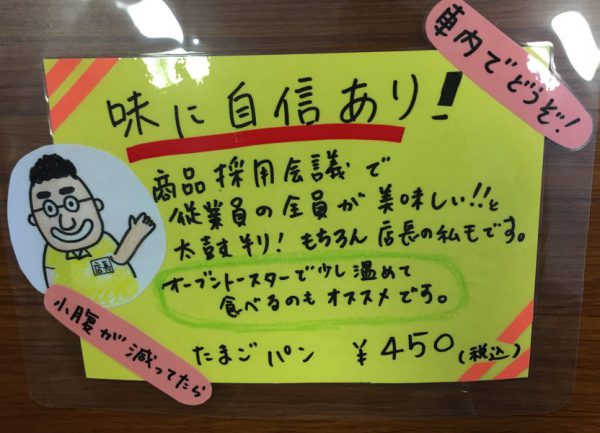 車内でどうぞ!
味に自信あり!
商品採用会議で
従業員の全員が美味しい!!と
太鼓判!もちろん店長の私もです。
オーブントースターで少し温めて
食べるのもオススメです。
店長
小腹が減ってたら
たまごパン ¥450(税込)